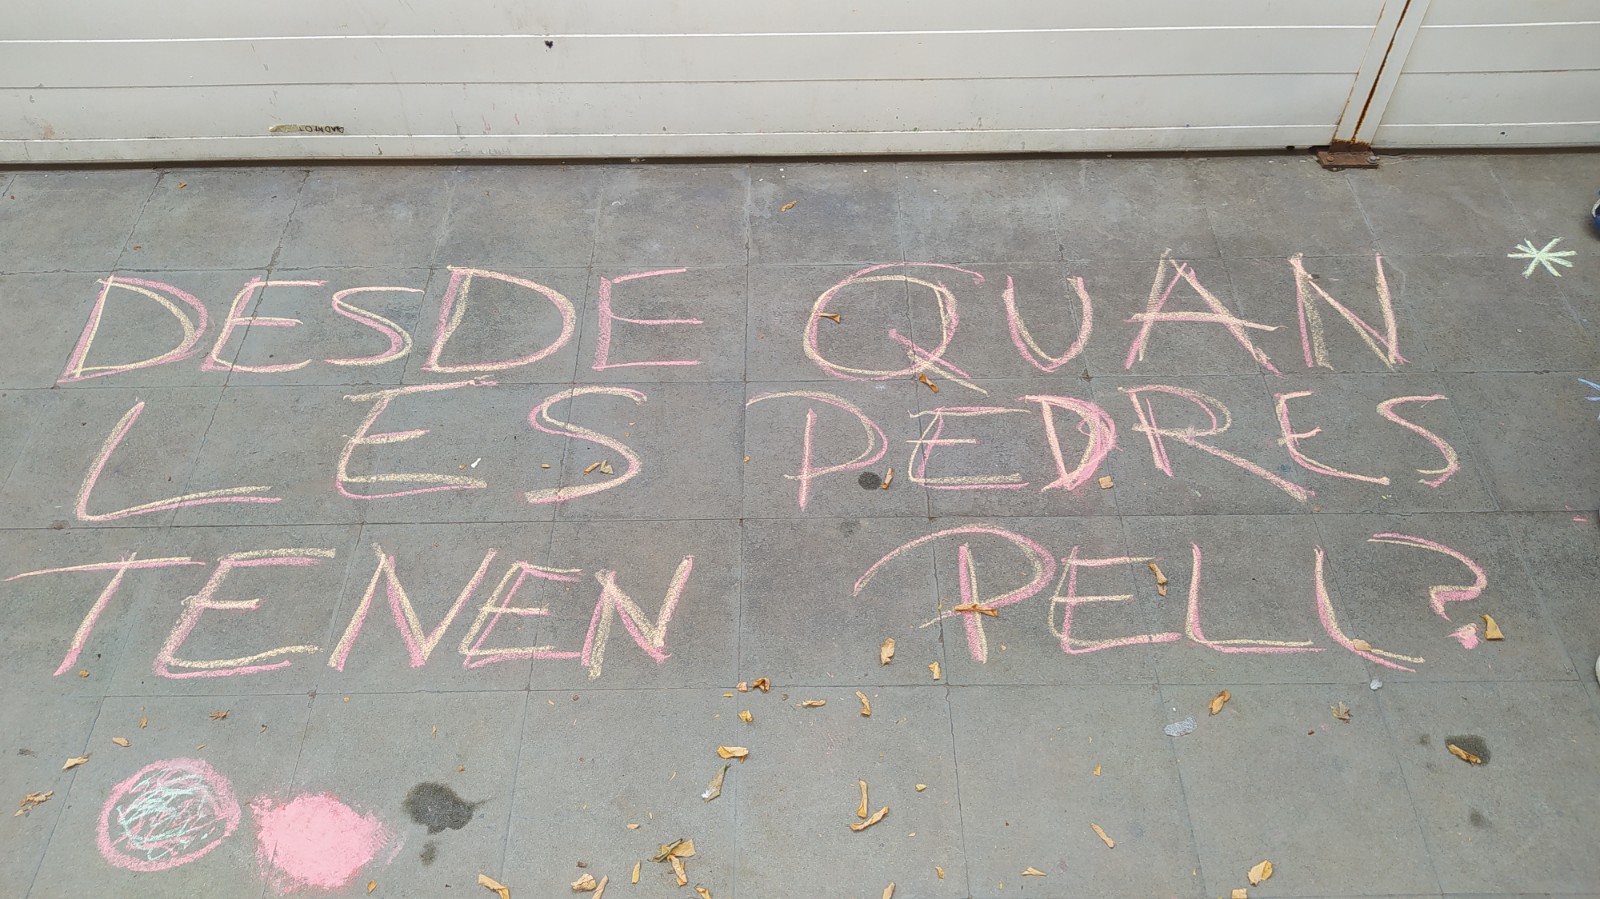 DESDE QUAN
LES PEDRES
TENEN PELL?